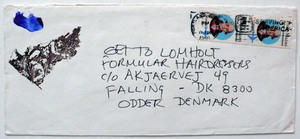 OTTO LOMHOLT
FORMULAR HAIRDRESSERS
C/O AKJAERVEJ 49
FALLING - DK 8300
ODDER DENMARK